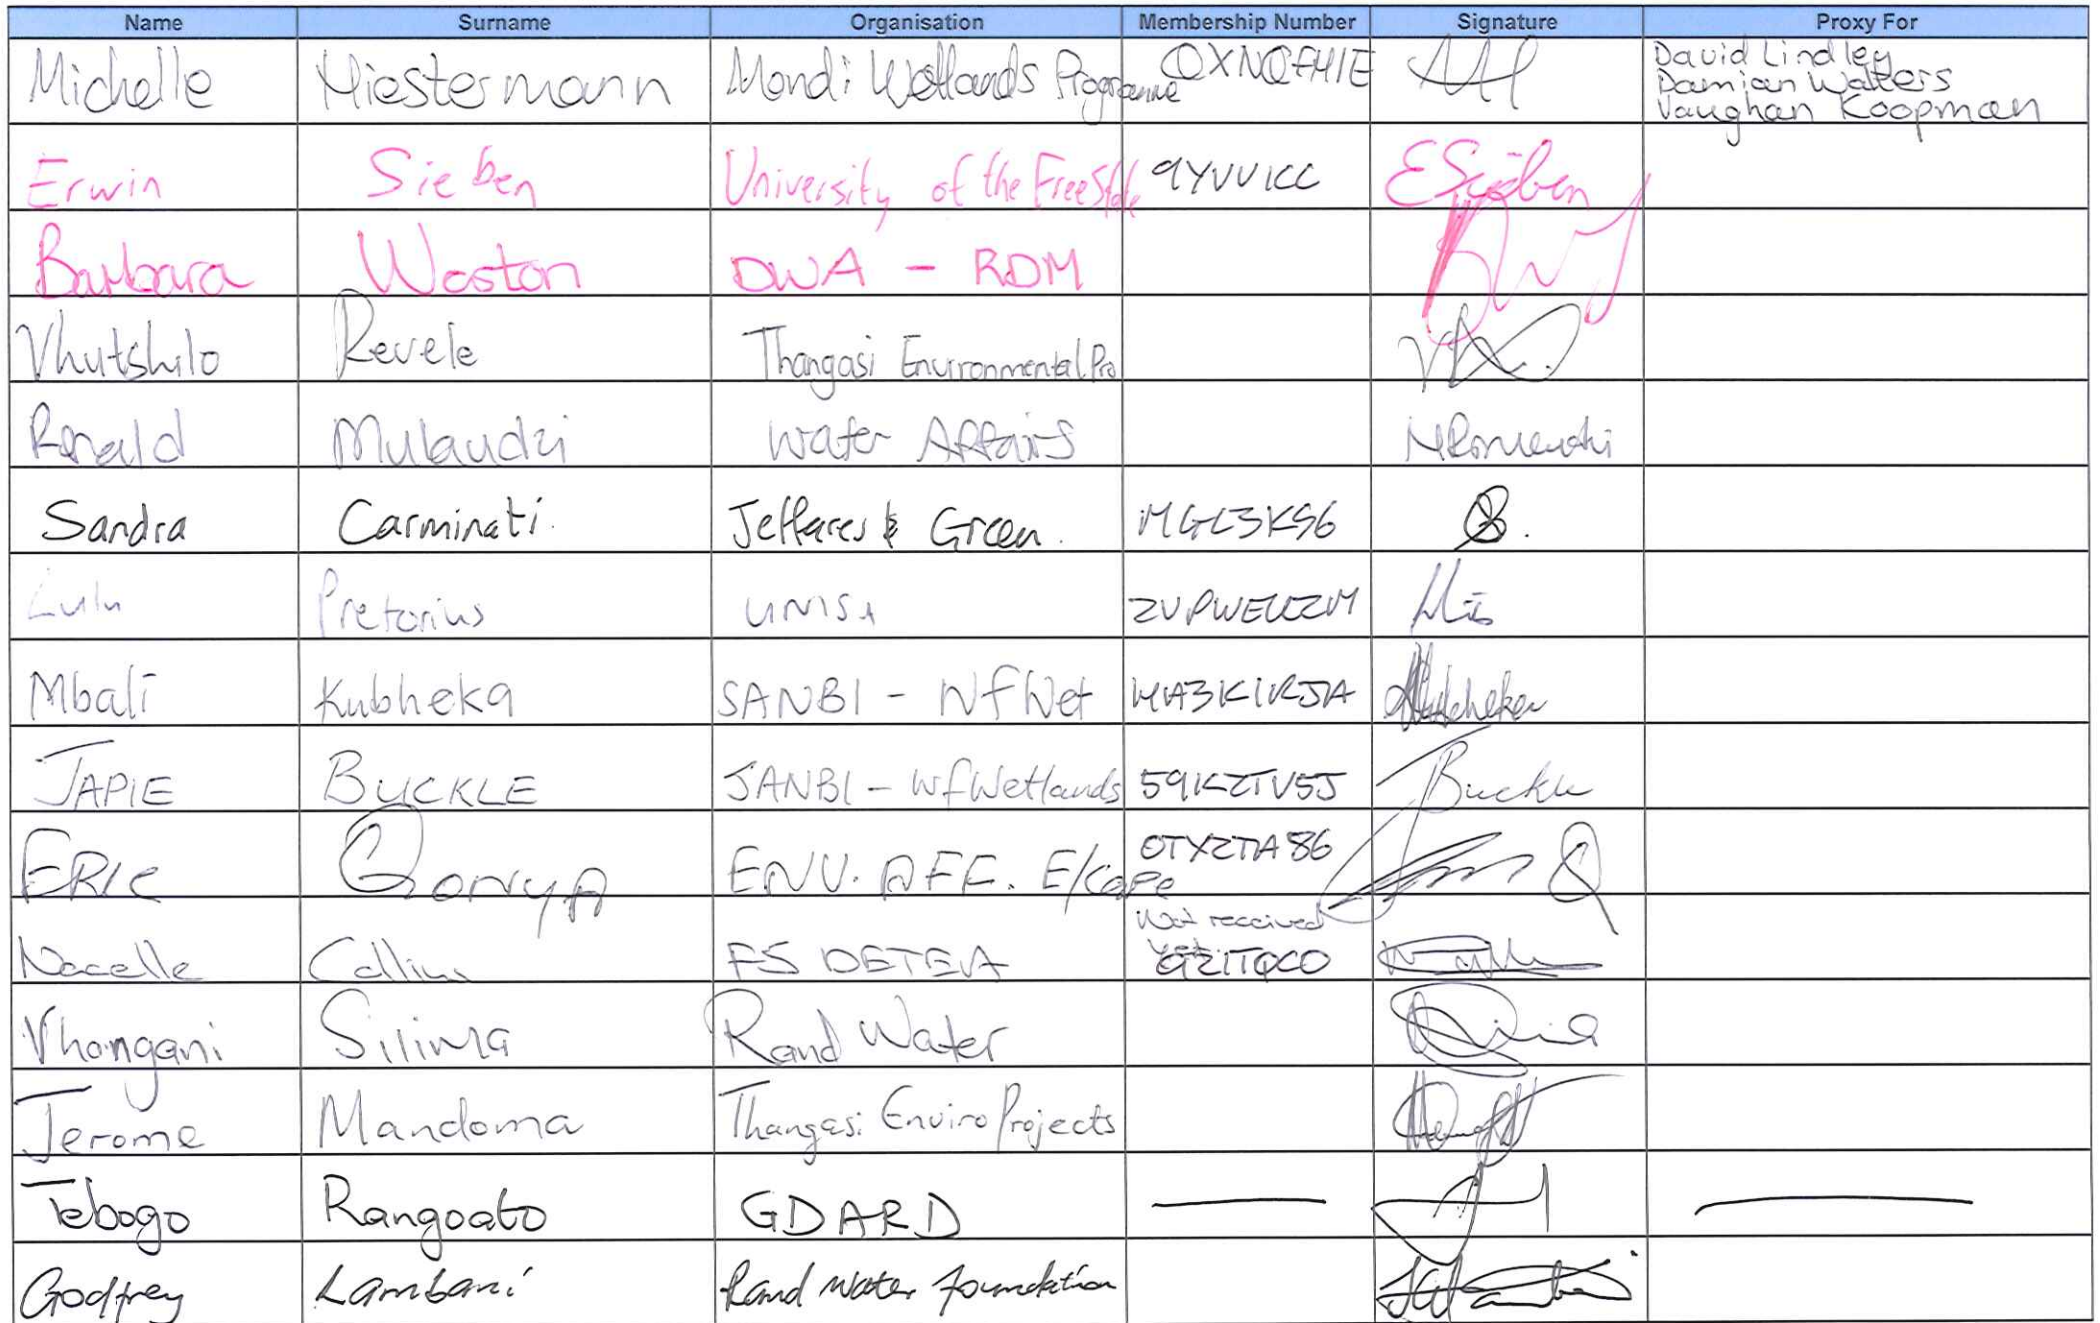 Name Surname Organisation Membership Number Signature Proxy For
Michelle Hiestermann Mondi Wetlands Programme QXNQFHIE David Lindley
Damian Walters
Vaughan Koopman
Erwin Sieben University of the Free State 9YVVICC ESieben
Barbara Weston DWA - RDM
Vhutshilo Revele Thangasi Environmental Pro
Ronald Mulaudzi Water Affairs
Sandra Carminati. Jeffares & Green.
Lulu Pretorius UNISA
Mbali Kubheka SANBI - WfWet
JAPIE BUCKLE SANBI - WfWetlands 59KZTV5J JBuckle
ERIC QONYA ENV. AFF. E/Cape OTYZTIA86
Not received
Nacelle Collins FS DETEA yet
Vhangani Silima Rand Water
Jerome Mandoma Thangasi Enviro Projects
Tebogo Rangoato GDARD
Godfrey Lambani Rand Water Foundation